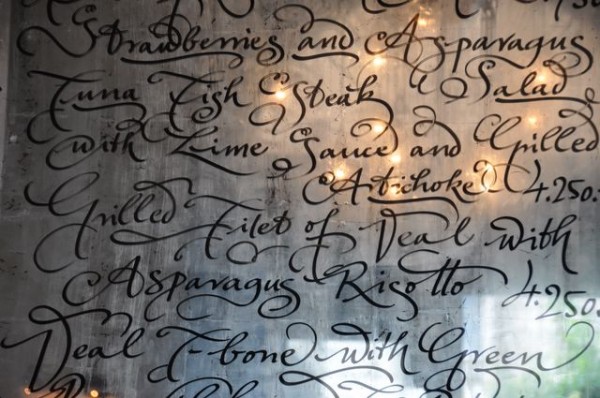 Strawberries and Asparagus
Tuna Fish Steak Salad
with Lime Sauce and Grilled
Artichoke 4.250.
Grilled Filet of Veal with
Asparagus Risotto 4.250.
Veal T-bone with Green